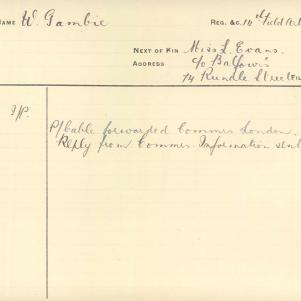 NAME W. Gambie REG. &C. 14th Field Art
NEXT OF KIN Miss L. Evans.
ADDRESS c/o Balfour's
74 Rundle Stree (FIL
I/P.
P/Cable forwarded Commrs London.
Reply from Commrs. Information